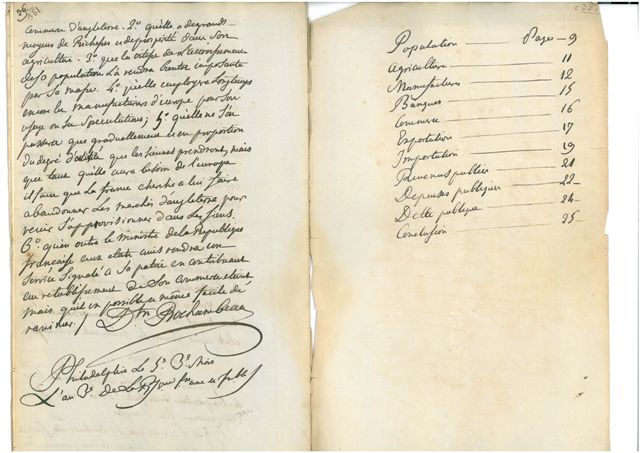 36
commerce d'angleterre. 2.° qu'elle a de grands
moyens de Richesses et de prosperité dans son
agriculture. 3.° que la vitesse de l'accroissement
de sa population La rendra bientot imposante
par sa masse. 4.° qu'elle employera Longtems
encore les manufactures d'europe pour son
usage ou ses speculations; 5.° qu'elle ne s'en
passera que graduellement et en proportion
du degré d'activité que les siennes prendront, mais
que tant qu'elle aura besoin de l'europe
il faut que La france cherche a lui faire
abandonner Les marchés d'angleterre pour
venir s'approvisionner dans Les siens.
6.° qu'en outre le ministre de la Republique
française aux etats unis rendra un
service signalé a sa patrie en contribuant
au retablissement de son commerce
mais qu'il est possible et même facile de
ranimer./. Rochambeau
Philadelphie Le 5.e 3.e Mois
L'an 3.e De La
Population Page 9
Agriculture 11
Manufactures 12
Banques 15
Commerce 16
Exportation 17
Importation 19
Revenus publics 21
Depenses publiques 22
Dette publique 24
Conclusion 25